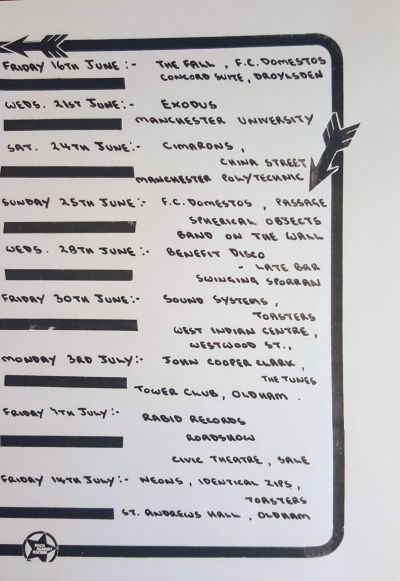 FRIDAY 16TH JUNE :- THE FALL , F.C. DOMESTOS
CONCORD SUITE, DROYLSDEN
WEDS. 21ST JUNE :- EXODUS
MANCHESTER UNIVERSITY
SAT. 24TH JUNE :- CIMARONS ,
CHINA STREET
MANCHESTER POLYTECHNIC
SUNDAY 25TH JUNE :- F.C. DOMESTOS , PASSAGE
SPHERICAL OBJECTS
BAND ON THE WALL
WEDS. 28TH JUNE :- BENEFIT DISCO
- LATE BAR
SWINGING SPORRAN
FRIDAY 30TH JUNE :- SOUND SYSTEMS ,
TOASTERS
WEST INDIAN CENTRE ,
WESTWOOD ST.,
MONDAY 3RD JULY :- JOHN COOPER CLARK ,
THE TUNES
TOWER CLUB, OLDHAM .
FRIDAY 7TH JULY :- RABID RECORDS
ROADSHOW
CIVIC THEATRE , SALE
FRIDAY 14TH JULY :- NEONS , IDENTICAL ZIPS ,
TOASTERS
ST. ANDREWS HALL , OLDHAM
ROCK
AGAINST
RACISM